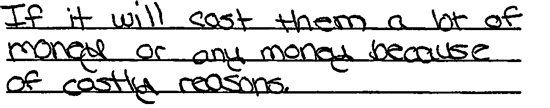 If it will cost them a lot of
money or any money because
of costly reasons.